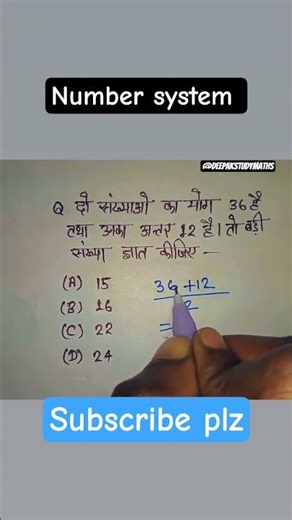 Number system
@DEEPAKSTUDYMATHS
Q दो संख्याओ का योग 36 है
तथा उनका अन्तर 12 है। तो बड़ी
संख्या ज्ञात कीजिए -
(A) 15
(B) 16
(C) 22
(D) 24
36+12
2
=
Subscribe plz